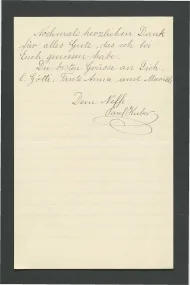 Nochmals herzlichen Dank
für alles Gute, das ich bei
Euch genossen habe.
Die besten Grüsse an Dich,
l. Götti, Tante Anna und
Dein Neffe
Paul Huber